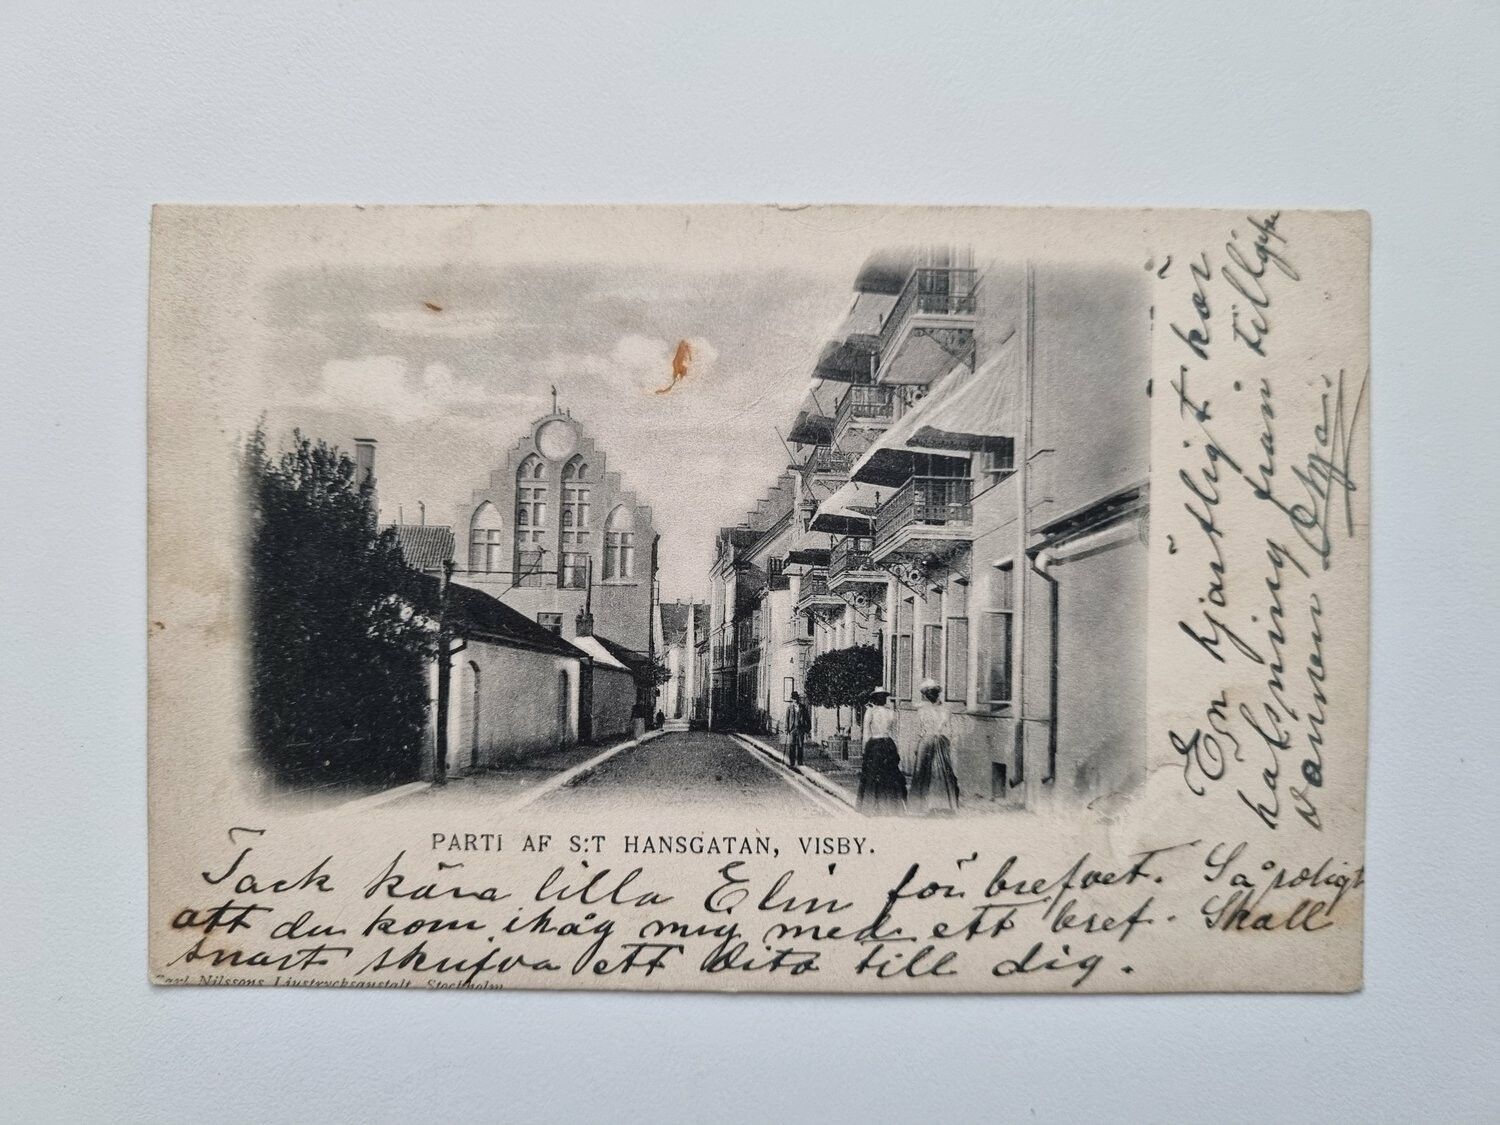 PARTI AF S:T HANSGATAN, VISBY.
Tack kära lilla Elin för brefvet. Så roligt
att du kom ihåg mig med ett bref. Skall
snart skrifva ett dito till dig.
Carl Nilssons Ljustrycksanstalt, Stockholm
En hjärtligt kär
helsning från tillgifne
vännen